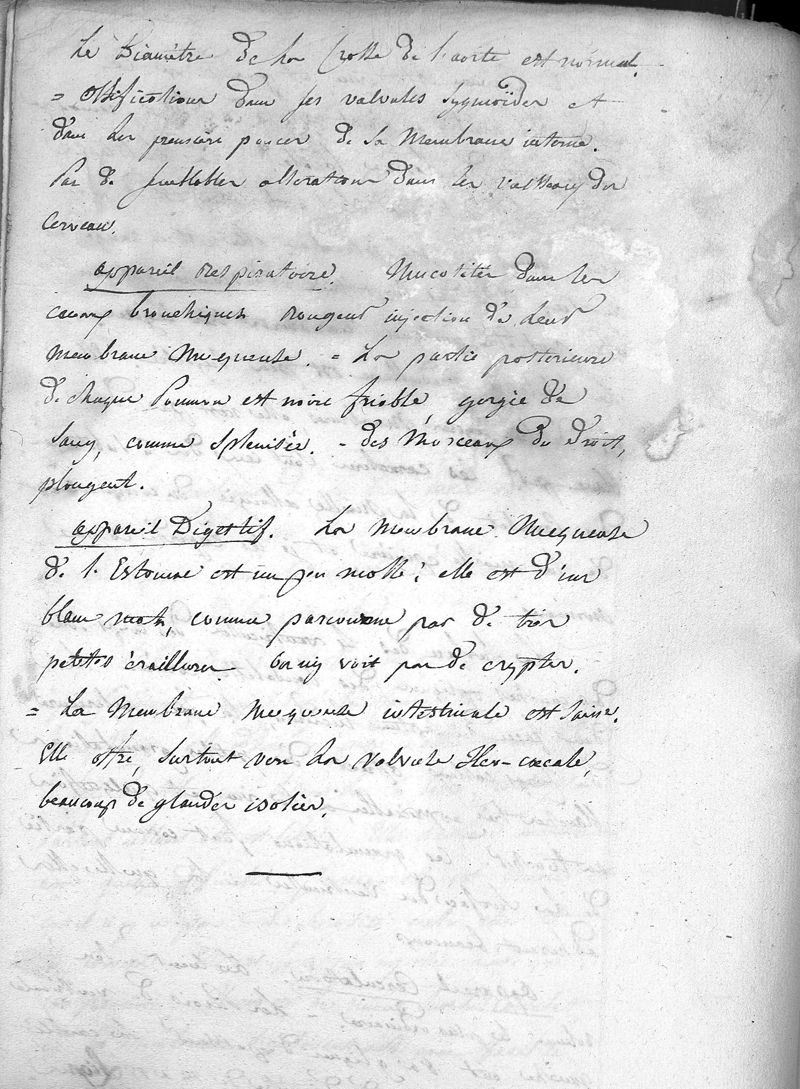 Le Diamètre de la Crosse de l'aorte est normal.
= Ossifications dans ses valvules sygmoïdes et
dans les premiers pouces de sa Membrane interne.
Pas de semblables altérations dans les vaisseaux du
Cerveau.
appareil Respiratoire. Mucosités dans les
canaux bronchiques rougeur injection de leur
Membrane Muqueuse. = La partie postérieure
de chaque Poumon est noire friable, gorgée de
sang, comme splenisée. - des Morceaux du droit,
plongent.
appareil Digestif. La Membrane Muqueuse
de l'Estomac est un peu molle; elle est d'un
blanc mat, comme parcourue par de très
petites éraillures. on n'y voit pas de cryptes.
= La Membrane Muqueuse intestinale est saine.
Elle offre, surtout vers la valvule Iléo-cœcale,
beaucoup de glandes isolées.